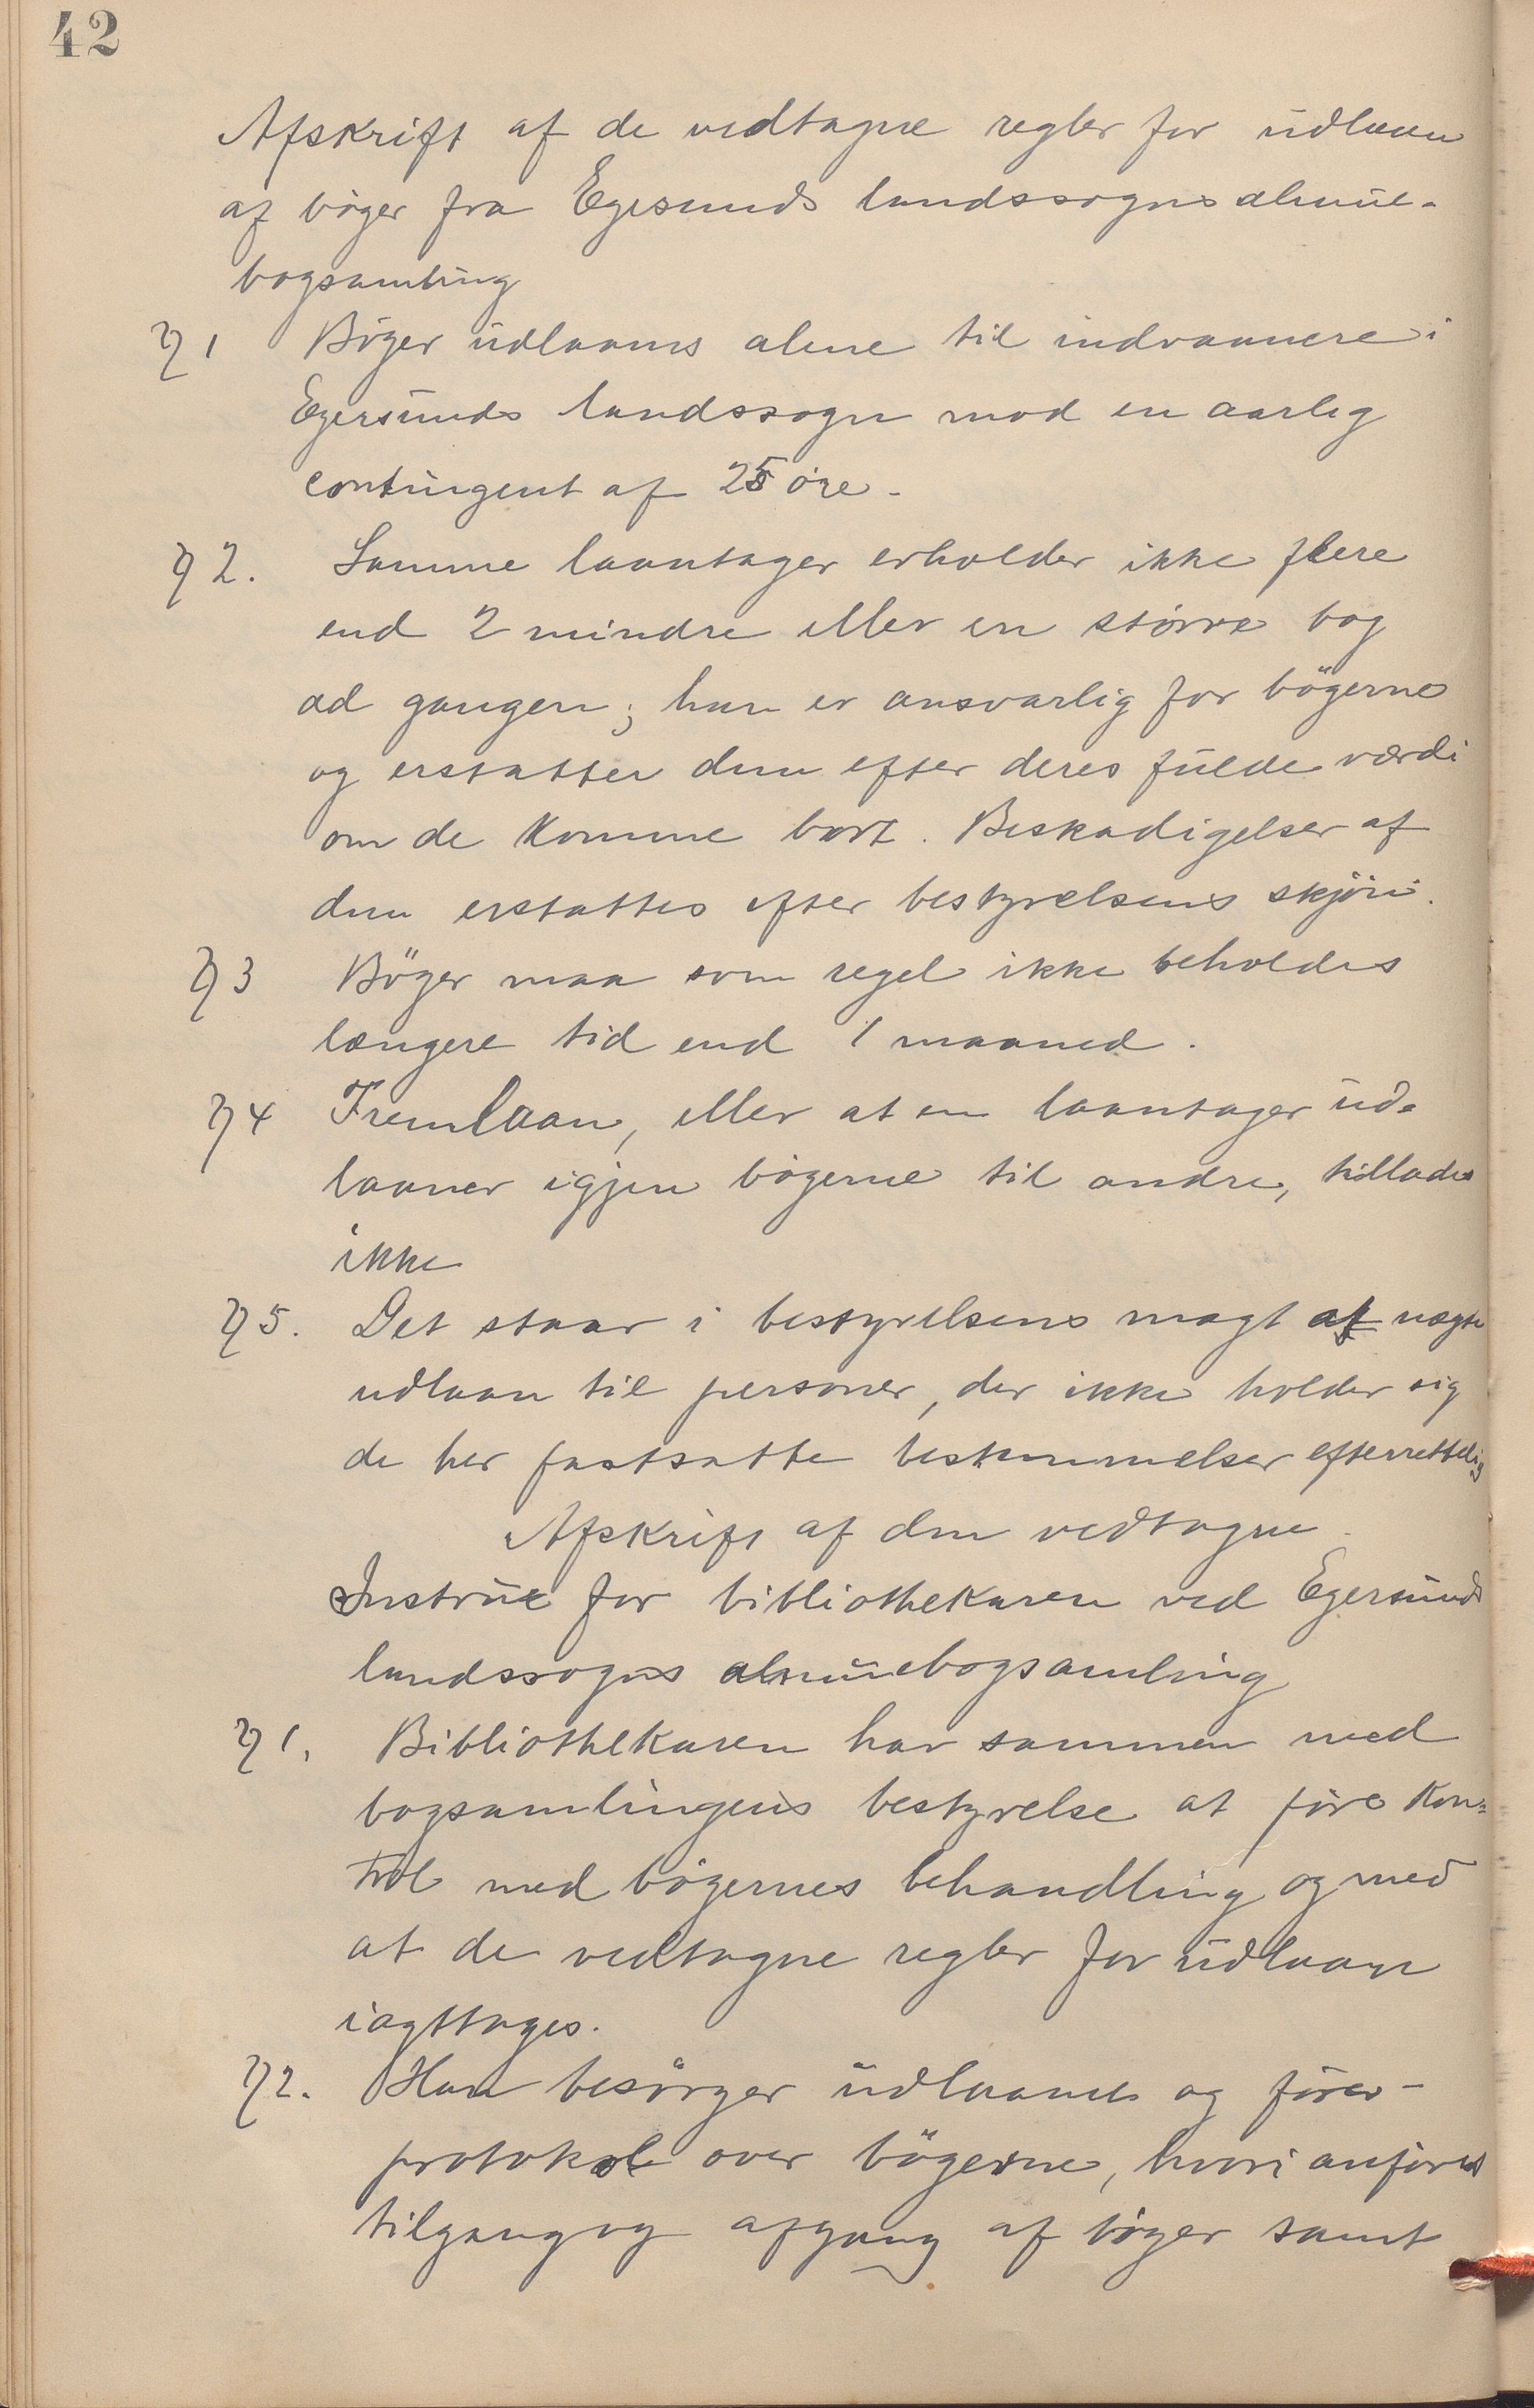 42
Afskrift af de vedtagne regler for udlaan
af bøger fra Egesunds landssogns almue-
bogsamling
§ 1 Bøger udlaanes alene til indvaanere i
Egersunds landssogn mod en aarlig
contingent af 25 øre.
§ 2. Samme laantager erholder ikke flere
end 2 mindre eller en større bog
ad gangen; han er ansvarlig for bøgerne
og erstatter dem efter deres fulde værdi
om de komme bort. Beskadigelser af
dem erstattes efter bestyrelsens skjøn.
§ 3 Bøger maa som regel ikke beholdes
længere tid end 1 maaned.
§ 4 Fremlaan, eller at en laantager ud-
laaner igjen bøgerne til andre, tillades
ikke
§ 5. Det staar i bestyrelsens magt at nægte
udlaan til personer, der ikke holder sig
de her fastsatte bestemmelser efterrettelig
Afskrift af den vedtagne
Instrux for bibliothekaren ved Egersunds
landssogns almuebogsamling
§ 1. Bibliothekaren har sammen med
bogsamlingens bestyrelse at føre kon-
trol med bøgernes behandling og med
at de vedtagne regler for udlaan
iagttages.
§ 2. Han besørger udlaanet og fører
protokol over bøgerne, hvori anføres
tilgang og afgang af bøger samt